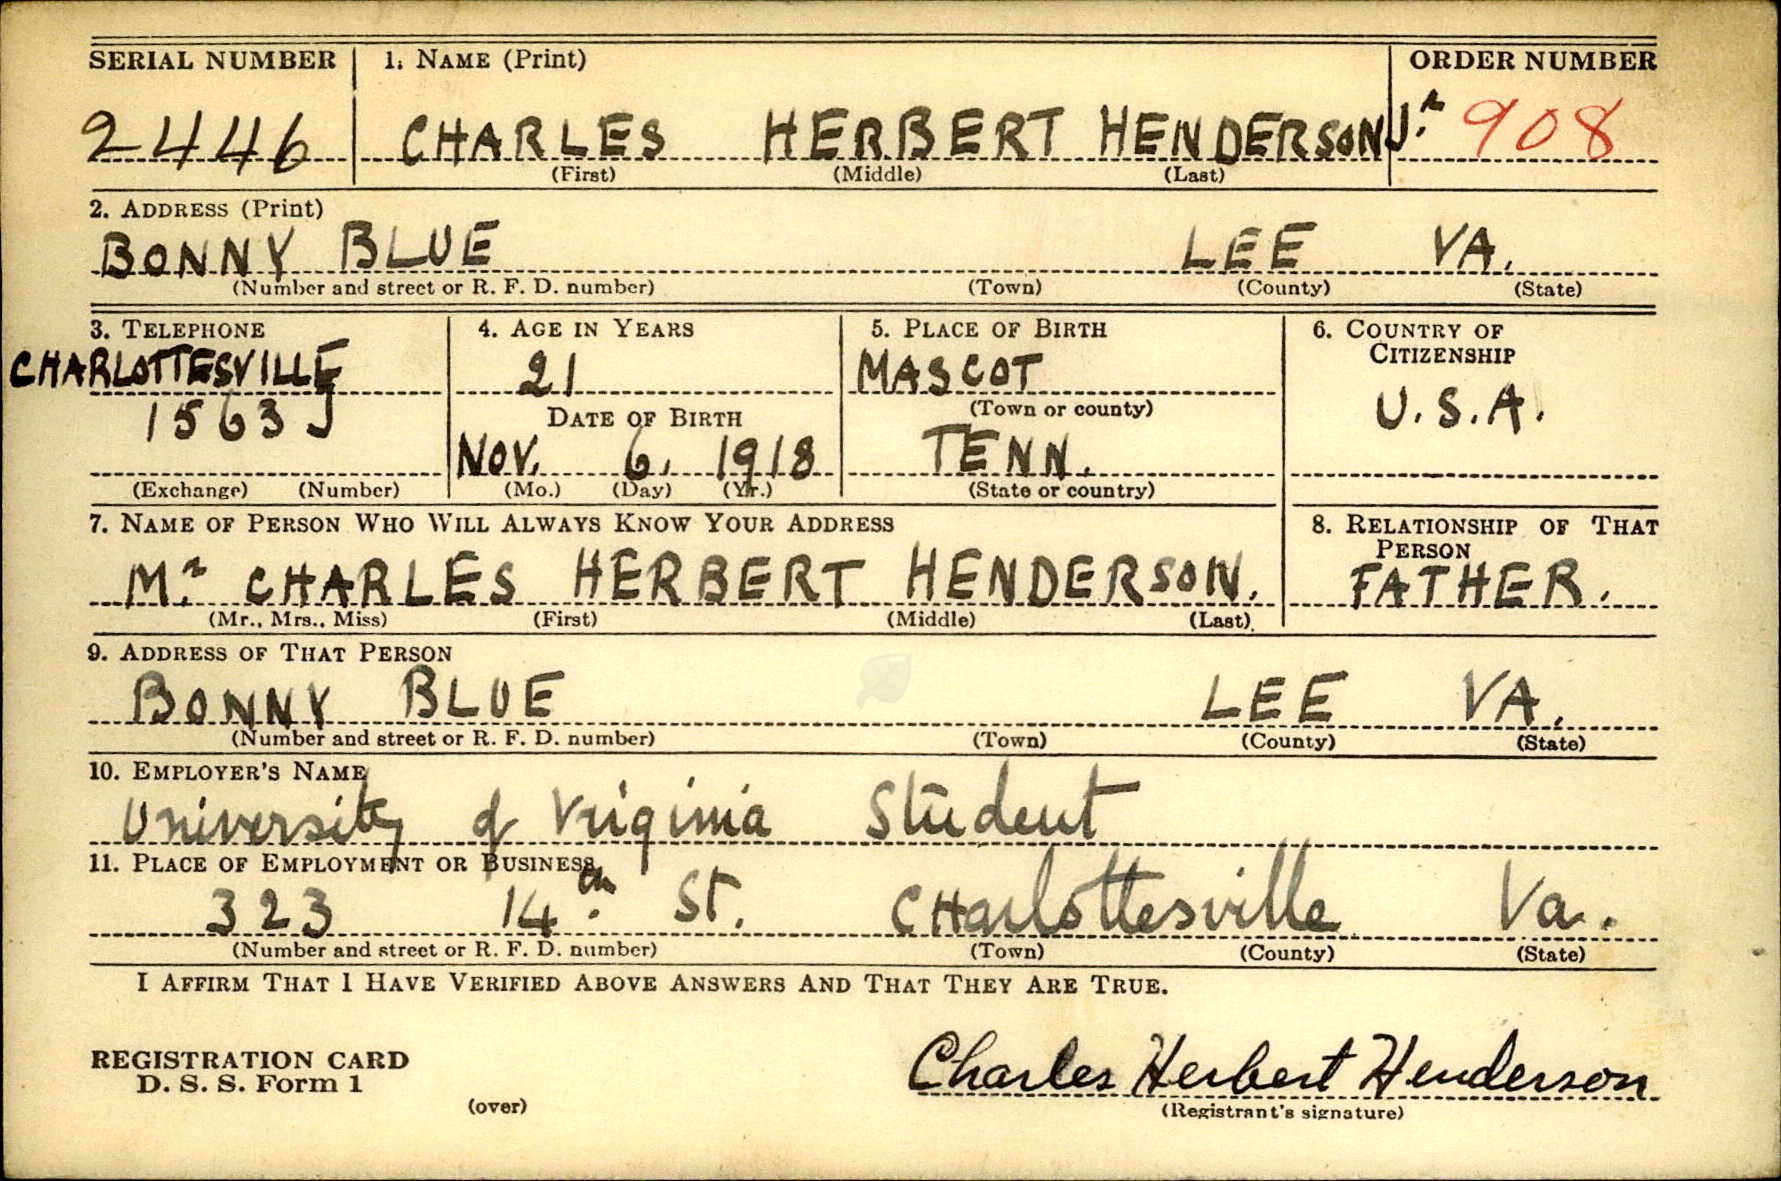 SERIAL NUMBER 1. NAME (Print) ORDER NUMBER
2446 CHARLES HERBERT HENDERSON Jr. 908
(First) (Middle) (Last)
2. ADDRESS (Print)
BONNY BLUE LEE VA.
(Number and street or R. F. D. number) (Town) (County) (State)
3. TELEPHONE 4. AGE IN YEARS 5. PLACE OF BIRTH 6. COUNTRY OF
CITIZENSHIP
CHARLOTTESVILLE 21 MASCOT
1563 J DATE OF BIRTH (Town or county) U.S.A.
NOV. 6, 1918 TENN.
(Exchange) (Number) (Mo.) (Day) (Yr.) (State or country)
7. NAME OF PERSON WHO WILL ALWAYS KNOW YOUR ADDRESS 8. RELATIONSHIP OF THAT
PERSON
Mr. CHARLES HERBERT HENDERSON. FATHER.
(Mr., Mrs., Miss) (First) (Middle) (Last)
9. ADDRESS OF THAT PERSON
BONNY BLUE LEE VA.
(Number and street or R. F. D. number) (Town) (County) (State)
10. EMPLOYER'S NAME
University of Virginia Student
11. PLACE OF EMPLOYMENT OR BUSINESS
323 14th St. CHarlottesville Va.
(Number and street or R. F. D. number) (Town) (County) (State)
I AFFIRM THAT I HAVE VERIFIED ABOVE ANSWERS AND THAT THEY ARE TRUE.
REGISTRATION CARD
D. S. S. Form 1
Charles Herbert Henderson
(over) (Registrant's signature)